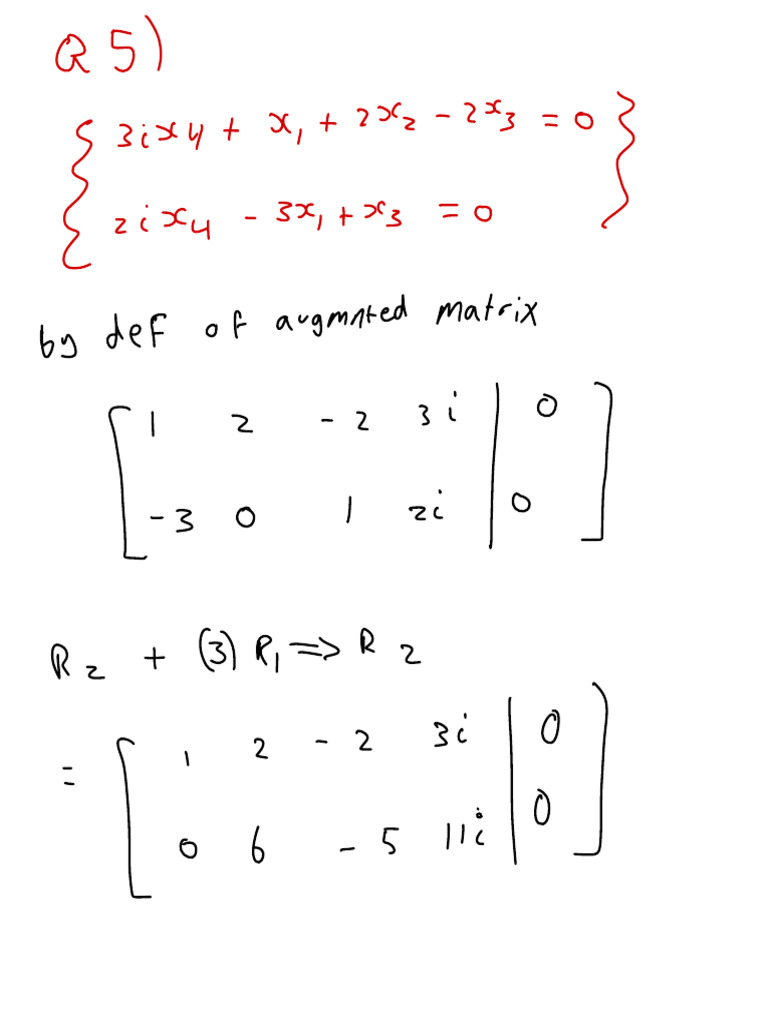 Q5)
{ 3ix4 + x₁ + 2x₂ - 2x₃ = 0 }
{ 2ix4 - 3x₁ + x₃ = 0 }
by def of augmnted matrix
[ 1 2 -2 3i | 0 ]
[ -3 0 1 2i | 0 ]
R₂ + (3) R₁ ⇒ R₂
= [ 1 2 -2 3i | 0 ]
[ 0 6 -5 11i | 0 ]